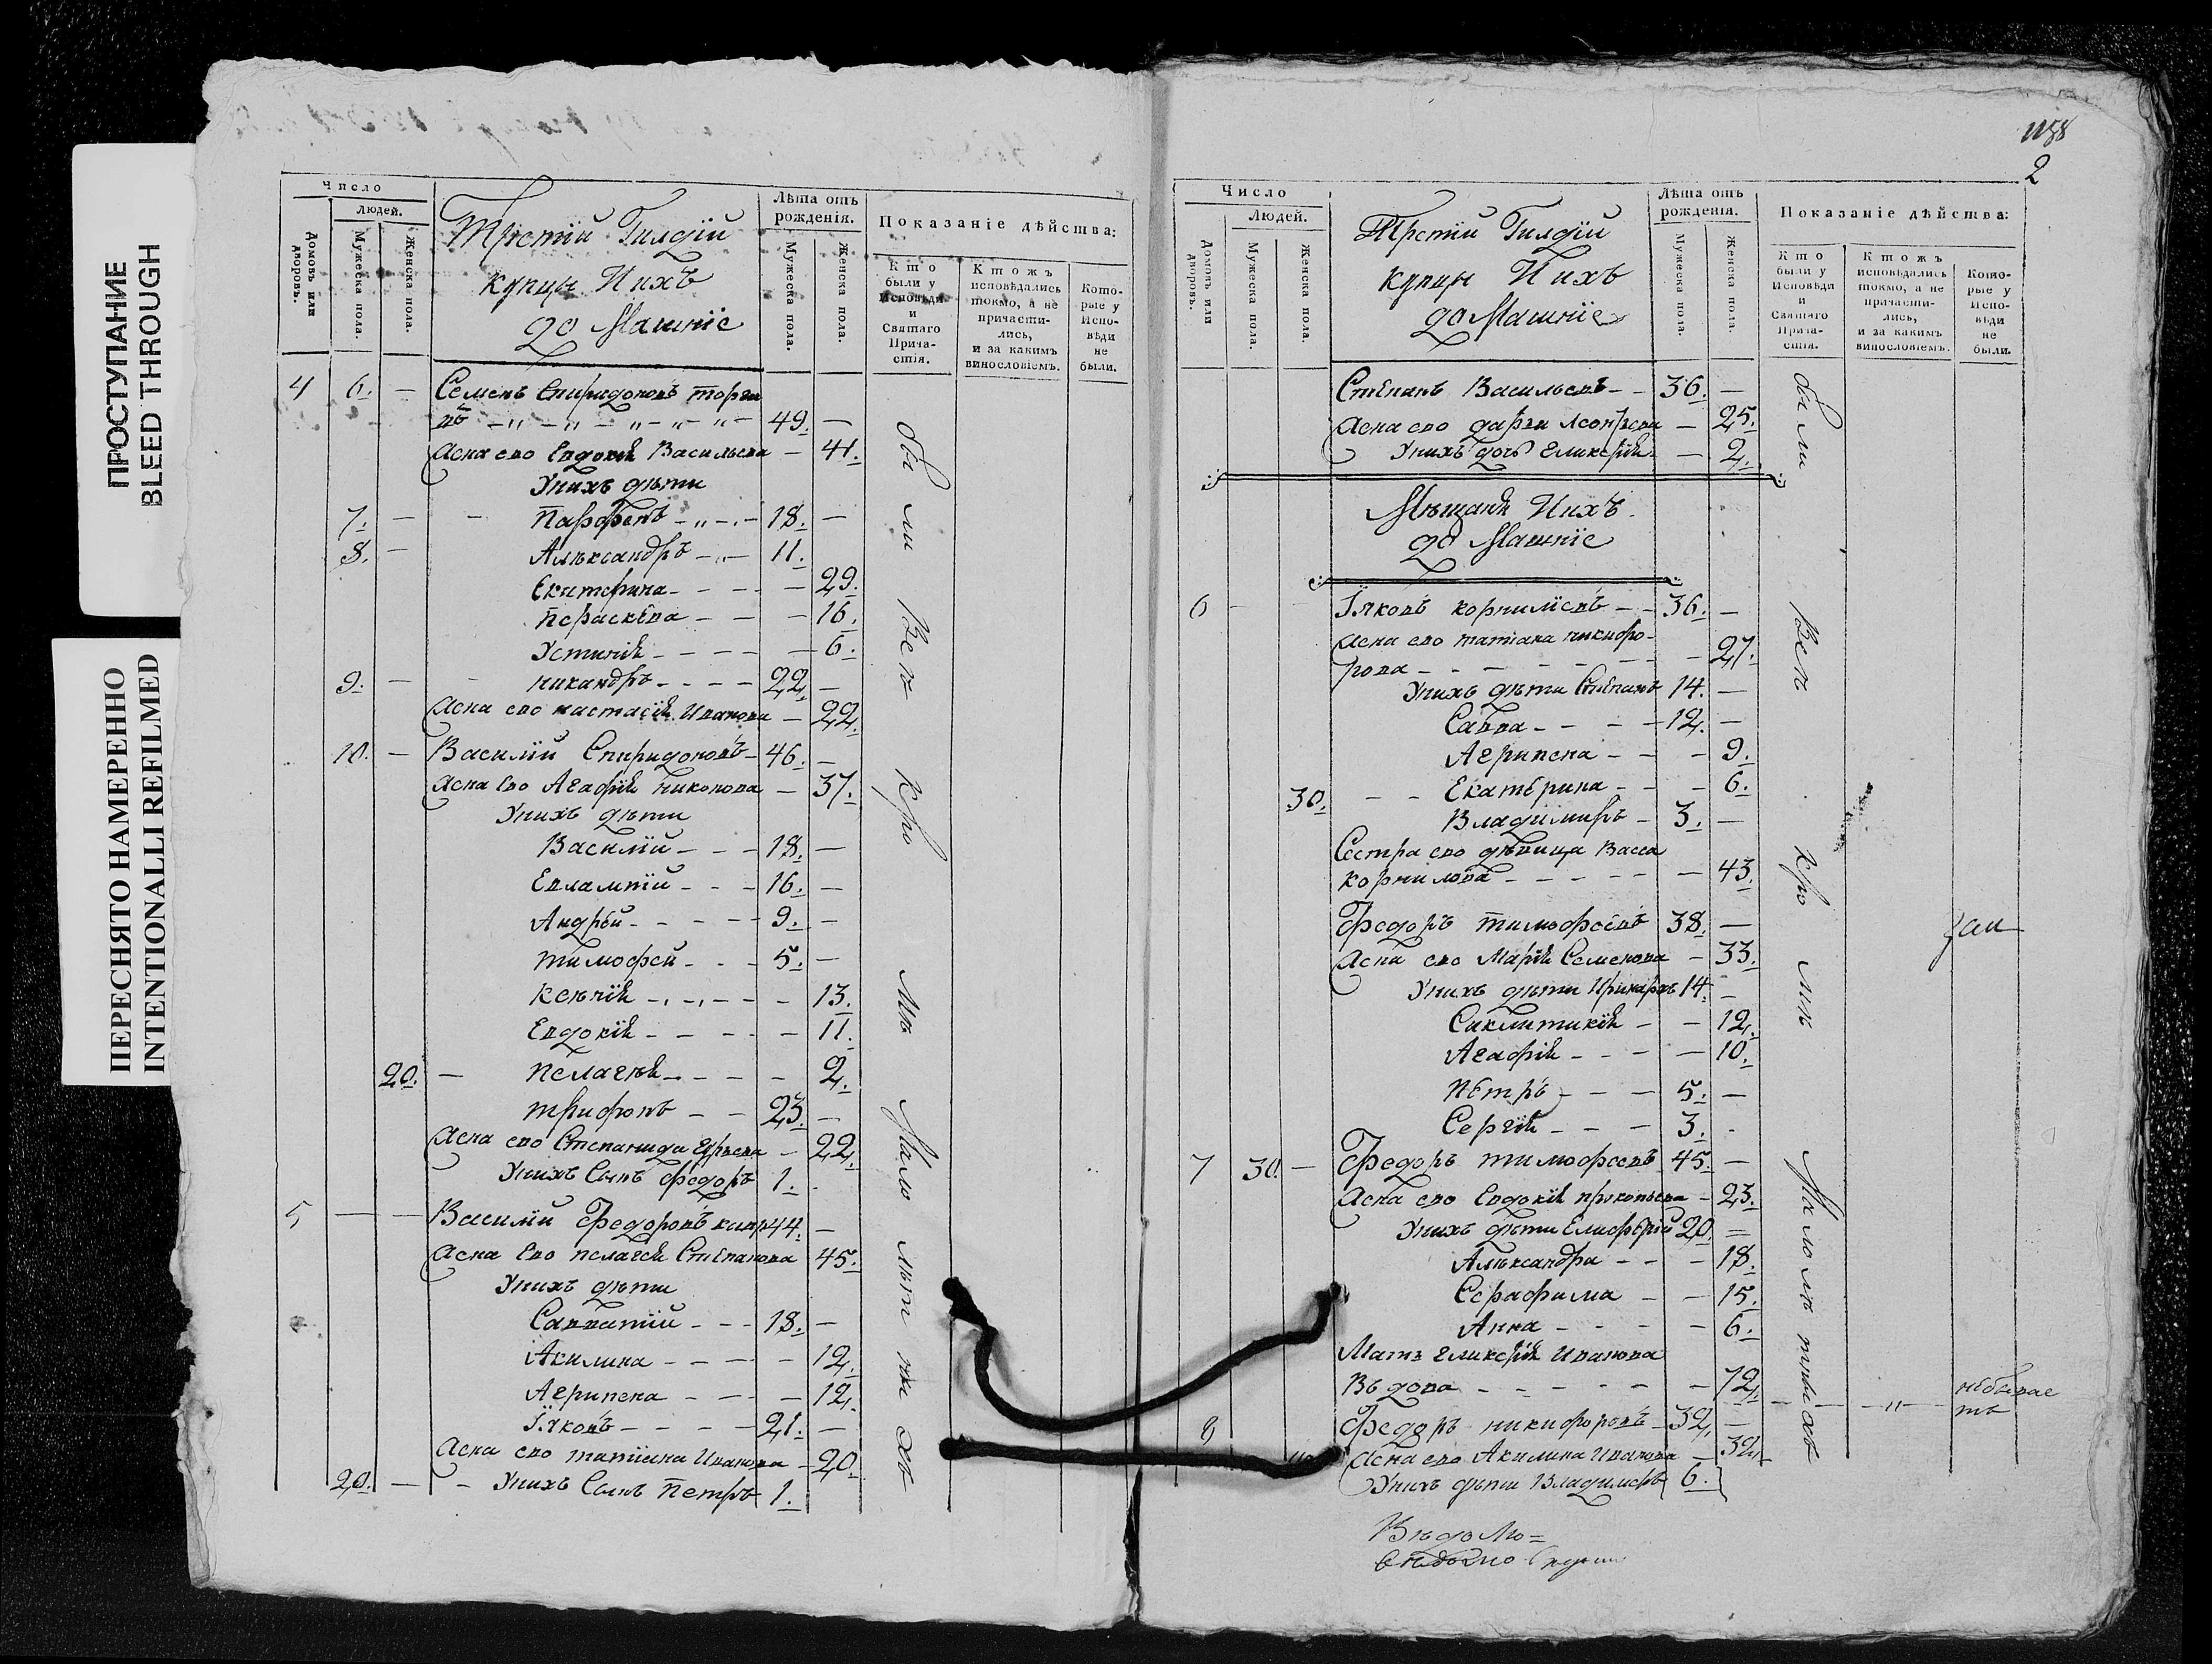 ПРОСТУПАНИЕ
BLEED THROUGH
ПЕРЕСНЯТО НАМЕРЕННО
INTENTIONALLI REFILMED
Число
Людей.
Домовъ или дворовъ.
Мужеска пола.
Женска пола.
Третїй Гилдїи
купцы Иихъ
домашнїе
Лѣта отъ рожденія.
Мужеска пола.
Женска пола.
Показаніе дѣйства:
Кто были у Исповѣди и Святаго Причастія.
Ктожъ исповѣдались токмо, а не причастились, и за какимъ винословіемъ.
Которые у Исповѣди не были.
4 6. — Семенъ Спиридоновъ
49. —
Жена ево Евдокѣя Васильева — 41.
Унихъ дѣти
7. — — Парфенъ 18. —
8. — Алѣксандръ 11.
Екатерина — 29.
Параскева — 16.
Устинїя — 6.
9. — Никандръ 22. —
Жена ево настасїя Иванова — 22.
10. — Василїй Спиридоновъ 46. —
Жена Ево Агафїя никонова — 37.
Унихъ дѣти
Василїй 18. —
Евлампїй 16. —
Андрей 9. —
тимофей 5. —
Ксѣнїя — 13.
Евдокїя — 11.
20. — Пелагѣя — 2.
трифонъ 23. —
Жена ево Степанида — 22.
Унихъ Сынъ федоръ 1.
5 — — Василїй Федоровъ 44. —
Жена Ево пелагея Степанова 45.
Унихъ дѣти
Савватїй 18. —
Акилина — 12.
Агрипена — 12.
Їяковъ 21. —
Жена ево татїана Иванова — 20.
20. — — Унихъ Сынъ Петръ 1.
были Всѣ Кромѣ Малолѣтнихъ
1158
2
Число
Людей.
Домовъ или дворовъ.
Мужеска пола.
Женска пола.
Третїй Гилдїи
купцы Иихъ
домашнїе
Лѣта отъ рожденія.
Мужеска пола.
Женска пола.
Показаніе дѣйства:
Кто были у Исповѣди и Святаго Причастія.
Ктожъ исповѣдались токмо, а не причастились, и за какимъ винословіемъ.
Которые у Исповѣди не были.
Степанъ Васильевъ 36. —
Жена ево дарья — 25.
Унихъ дочь Гликерїя — 2.
Мѣщанѣ Иихъ
домашнїе
6 — — Їяковъ корнилїевъ 36. —
Жена ево татїана никифо-
рова — 27.
Унихъ дѣти Степанъ 14. —
Савва 12. —
Агрипена — 9.
30. — — Екатерина — 6.
Владимиръ 3. —
Сестра ево дѣвица Васса
корнилова — 43.
Федоръ тимофеевъ 38. —
Жена ево Марїя Семенова — 33.
Унихъ дѣти 14. —
Сиклитикїя — 12.
Агафїя — 10.
Петръ 5. —
Сергїй 3. -
7 30. — Федоръ тимофеевъ 45. —
Жена ево Евдокїя прокопьева — 23.
Унихъ дѣти Елифѣрїй 20. =
Алѣксандра — 18.
Серафима — 15.
Анна — 6.
Мать Гликерїя Иванова
Вдова — 72.
небывае
тъ
8 Федоръ никифоровъ 32. —
Жена ево Акилина Иванова — 32.
Унихъ дѣти Владимеръ 6.
были Всѣ Кромѣ Малолѣтнихъ